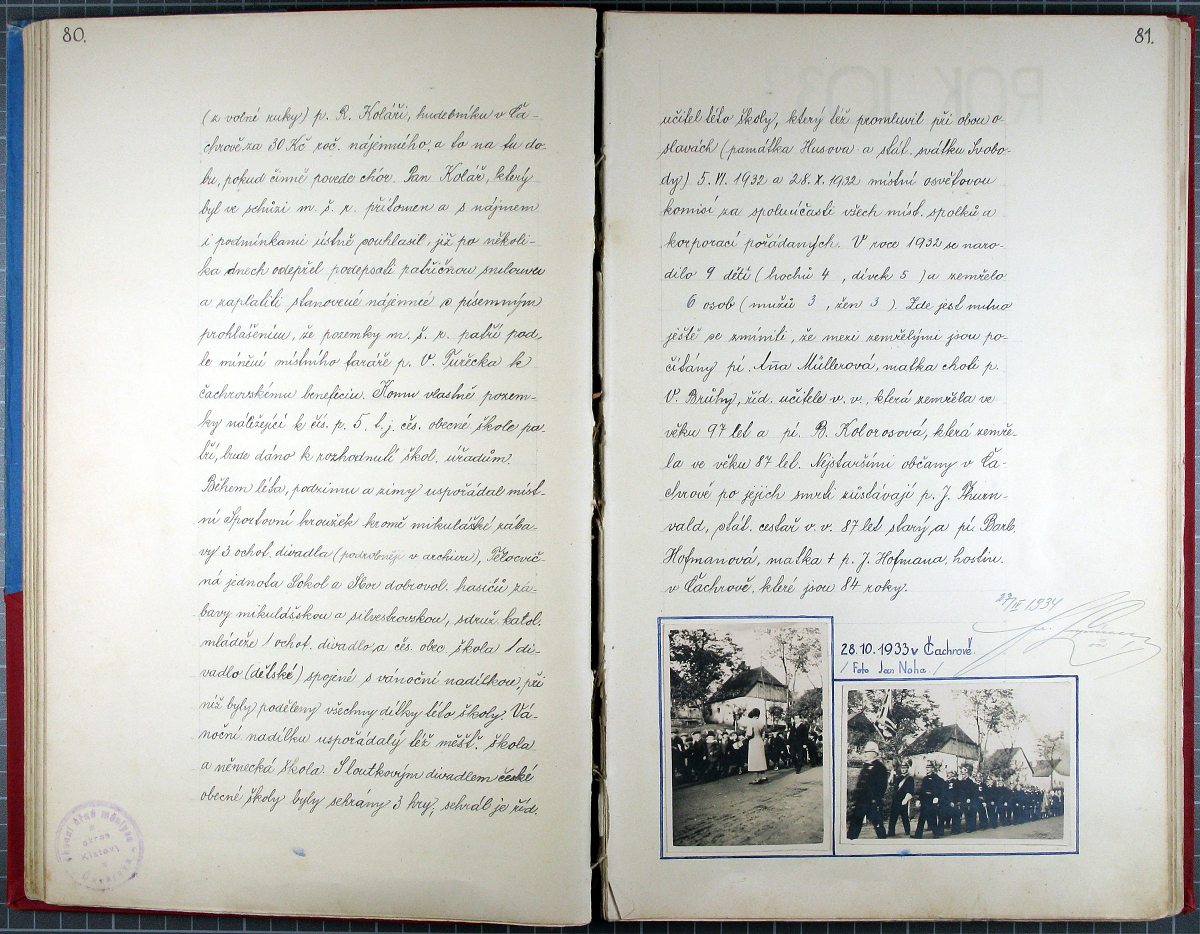 80.
(z volné ruky) p. R. Koláři, hudebníku v Ča-
chrově za 30 Kč roč. nájemného, a to na tu do-
bu, pokud činně povede chór. Pan Kolář, který
byl ve schůzi m. š. r. přítomen a s nájmem
i podmínkami ústně souhlasil, již po několi-
ka dnech odepřel podepsati patřičnou smlouvu
a zaplatiti stanovené nájemné s písemným
prohlášením, že pozemky m. š. r. patří pod-
le mínění místního faráře p. V. Turečka k
čachrovskému beneficiu. Komu vlastně pozem-
ky náležející k čís. p. 5. t. j. čes. obecné škole pa-
tří, bude dáno k rozhodnutí škol. úřadům.
Během léta, podzimu a zimy uspořádal míst-
ní Sportovní kroužek kromě mikulášské zába-
vy 3 ochot. divadla (podrobněji v archivu), Tělocvič-
ná jednota Sokol a Sbor dobrovol. hasičů zá-
bavy mikulášskou a silvestrovskou, sdruž. katol.
mládeže 1 ochot. divadlo, a čes. obec. škola 1 di-
vadlo (dětské) spojené s vánoční nadílkou, při
níž byly poděleny všechny dítky této školy. Vá-
noční nadílku uspořádaly též měšť. škola
a německá škola. S loutkovým divadlem české
obecné školy byly sehrány 3 hry, sehrál je říd.
okres
Klatovy
81.
učitel této školy, který též promluvil při obou o-
slavách (památka Husova a stát. svátku Svobo-
dy) 5. VI. 1932 a 28. X. 1932 místní osvětovou
komisí za spoluúčasti všech míst. spolků a
korporací pořádaných. V roce 1932 se naro-
dilo 9 dětí (hochů 4, dívek 5) a zemřelo
6 osob (mužů 3, žen 3). Zde jest nutno
ještě se zmíniti, že mezi zemřelými jsou po-
čítány pí. Aňa Müllerová, matka choti p.
V. Brůhy, říd. učitele v. v., která zemřela ve
věku 97 let a pí. B. Kolorosová, která zemře-
la ve věku 87 let. Nejstaršími občany v Ča-
chrově po jejich smrti zůstávají p. J. Thurn-
vald, stát. cestář v. v. 87 let starý a pí. Barb.
Hofmanová, matka + p. J. Hofmana, hostin.
v Čachrově, které jsou 84 roky.
1934
28.10.1933 v Čachrově.
/ Foto Jan Noha /